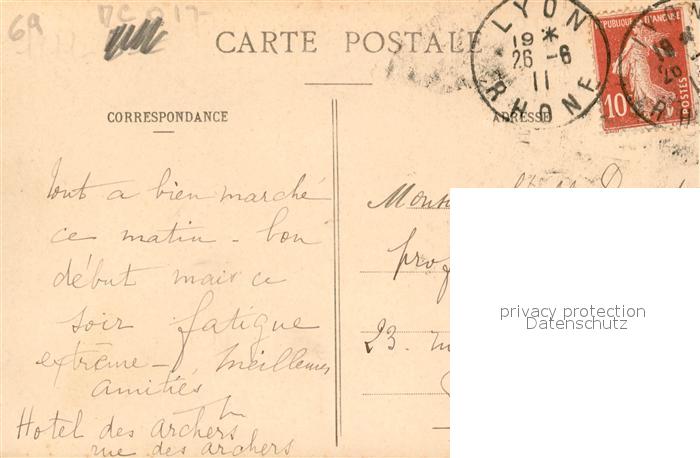 69
CARTE POSTALE
LYON
19 *
26 - 6
11
RHONE
REPUBLIQUE FRANÇAISE
10
POSTES
CORRESPONDANCE
ADRESSE
Tout a bien marché
ce matin - bon
début mais ce
soir fatigue
extrême - Meilleures
amitiés
Hotel des archers
rue des archers
23.
privacy protection
Datenschutz